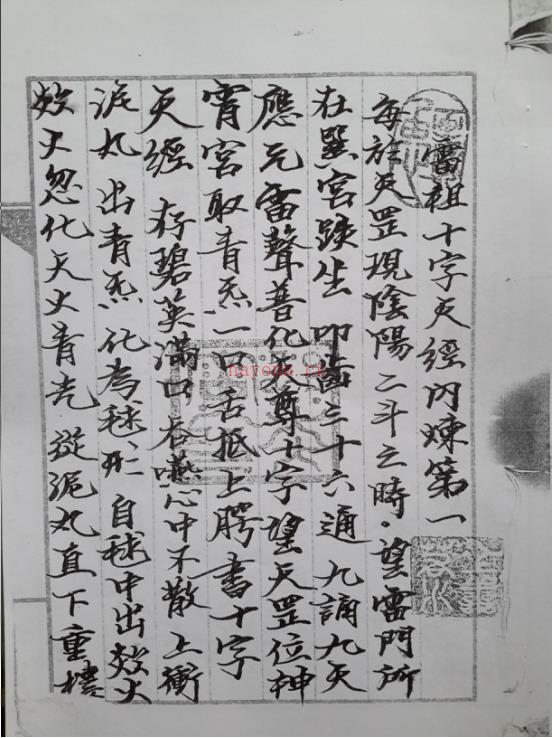 雷祖十字天經內煉第一
每於天罡現陰陽二斗之時。望雷門所
在巽宮趺坐 叩齒三十六通 九誦九天
應元雷聲普化天尊十字望天罡位神
霄宮取青炁一口舌抵上腭 書十字
天經 存碧英滿口吞嚥心中不散上衝
泥丸 出青炁化為毬形 自毬中出欻火
欻火忽化天火青光 從泥丸直下重樓